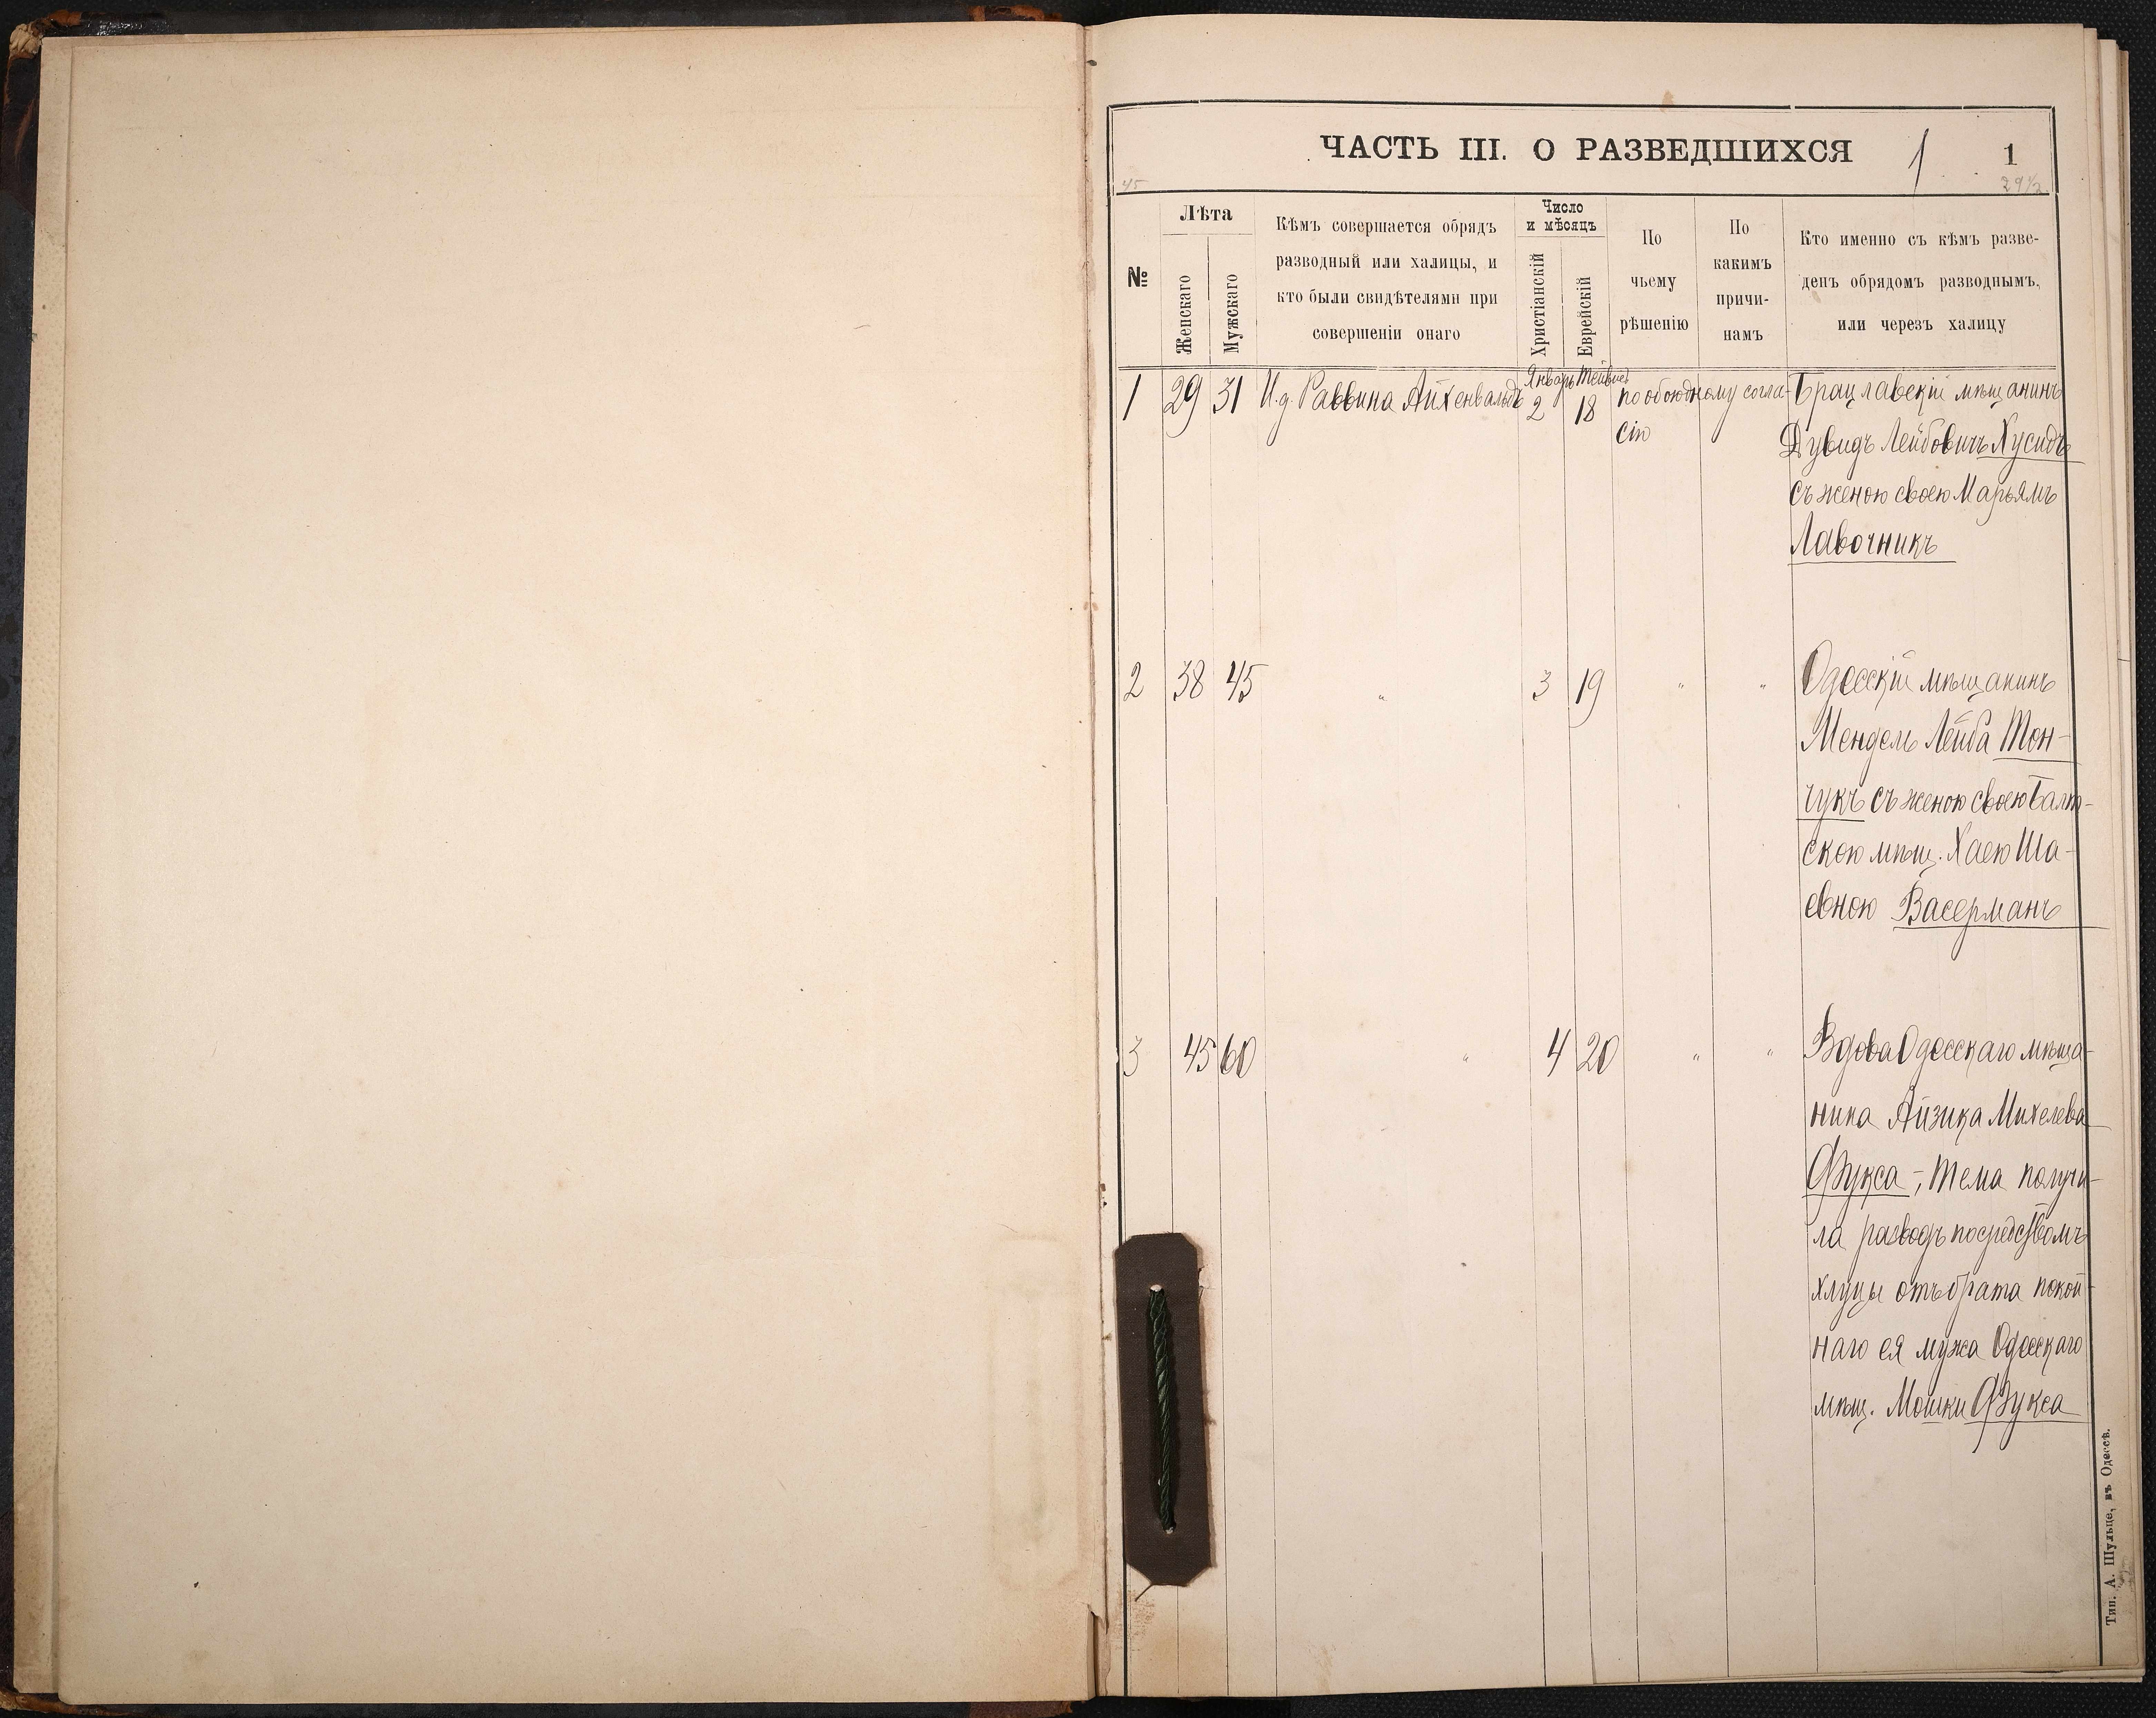 ЧАСТЬ III. О РАЗВЕДШИХСЯ 1 1
45 29 1/2
№
Лѣта
Женскаго
Мужскаго
Кѣмъ совершается обрядъ
разводный или халицы, и
кто были свидѣтелями при
совершеніи онаго
Число
и мѣсяцъ
Христіанскій
Еврейскій
По
чьему
рѣшенію
По
какимъ
причи-
намъ
Кто именно съ кѣмъ разве-
денъ обрядомъ разводнымъ,
или черезъ халицу
Январь Тейвесъ
1 29 31 И.д. Раввина Айхенвальдъ 2 18 по обоюдному согла- Брацлавскій мѣщанинъ
сію
Дувидъ Лейбовичъ Хусидъ
съ женою своею Марьямъ
Лавочникъ
2 38 45 " 3 19 " " Одесскій мѣщанинъ
Мендель Лейба Тон-
чукъ съ женою своею Балт-
скою мѣщ. Хаею Ша-
евною Васерманъ
3 45 60 " 4 20 " " Вдова Одесскаго мѣща-
нина Айзика Михелева
Фукса-, Тема получи-
ла разводъ посредствомъ
хлуцы отъ брата покой-
наго ея мужа Одесскаго
мѣщ. Мошки Фукса
Тип. А. Шульце, въ Одессѣ.